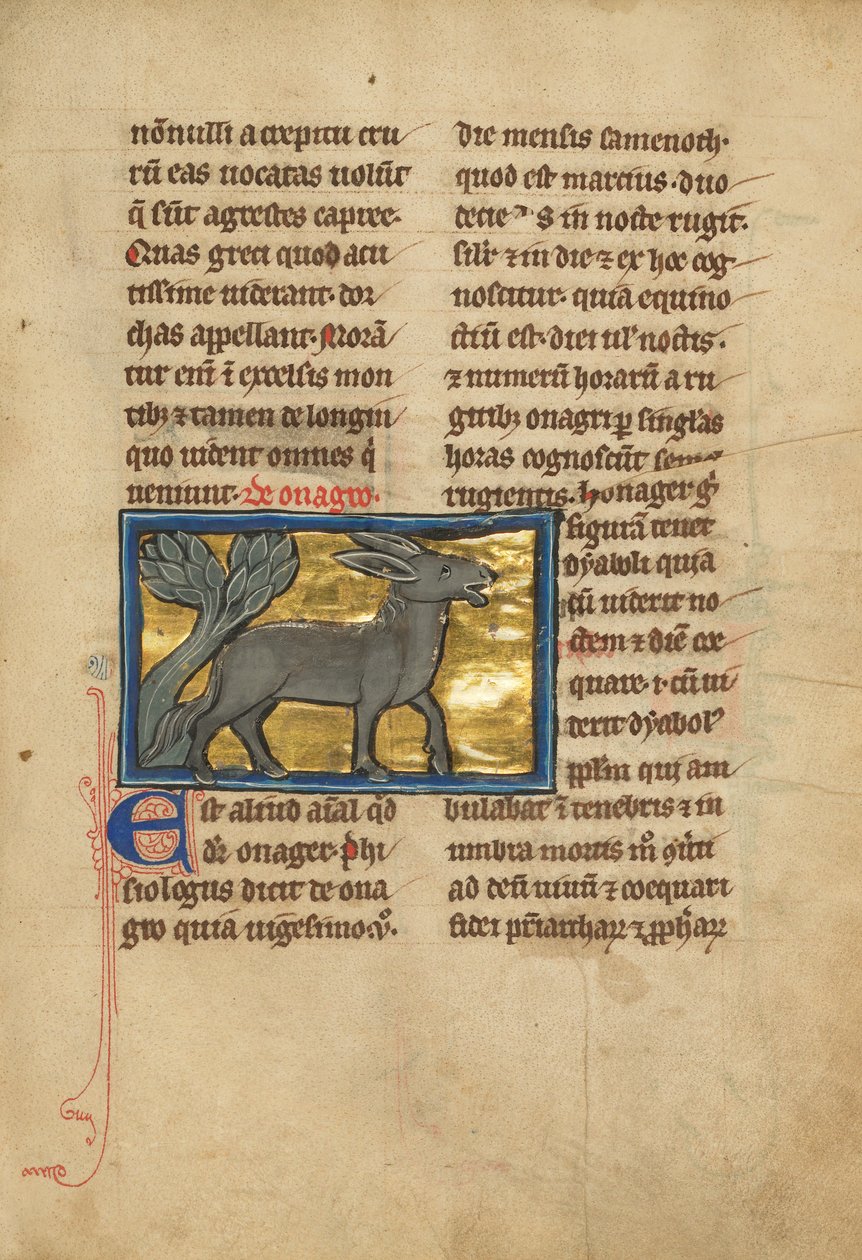 nōnulli a crepitu cru
rū eas uocatas uolūt
q̄ sūt agrestes capree.
Quas greci quod acu
tissime uiderant. dor
chas appellant. Morā
tur enī ī excelsis mon
tibꝫ ⁊ tamen de longin
quo uident omnes q̇
ueniunt. De onagro.
Est aliud aīal qd̄
dr̄ onager. Phi
siologus dicit de ona
gro quia uigesimo .v̊.
die mensis famenoth.
quod est marcius. duo
decies in nocte rugit.
silr̄ ⁊ in die ⁊ ex hoc cog
noscitur. quia equino
ctiū est. diei ul̄ noctis.
⁊ numerū horarū a ru
gitibꝫ onagri ꝑ singl̄as
horas cognoscūt semel
rugientis. Honager g̊
figurā tenet
dẏaboli quia
cū uiderit no
ctem ⁊ diē coe
quare .i. cū ui
derit dẏabolꝰ
ppl̄m qui am
bulabat ī tenebris ⁊ in
umbra mortis m̊ ꝯuˢti
ad deū uiuū ⁊ coequari
fidei pr̄iarcharꝝ ⁊ ꝓph̄arꝝ